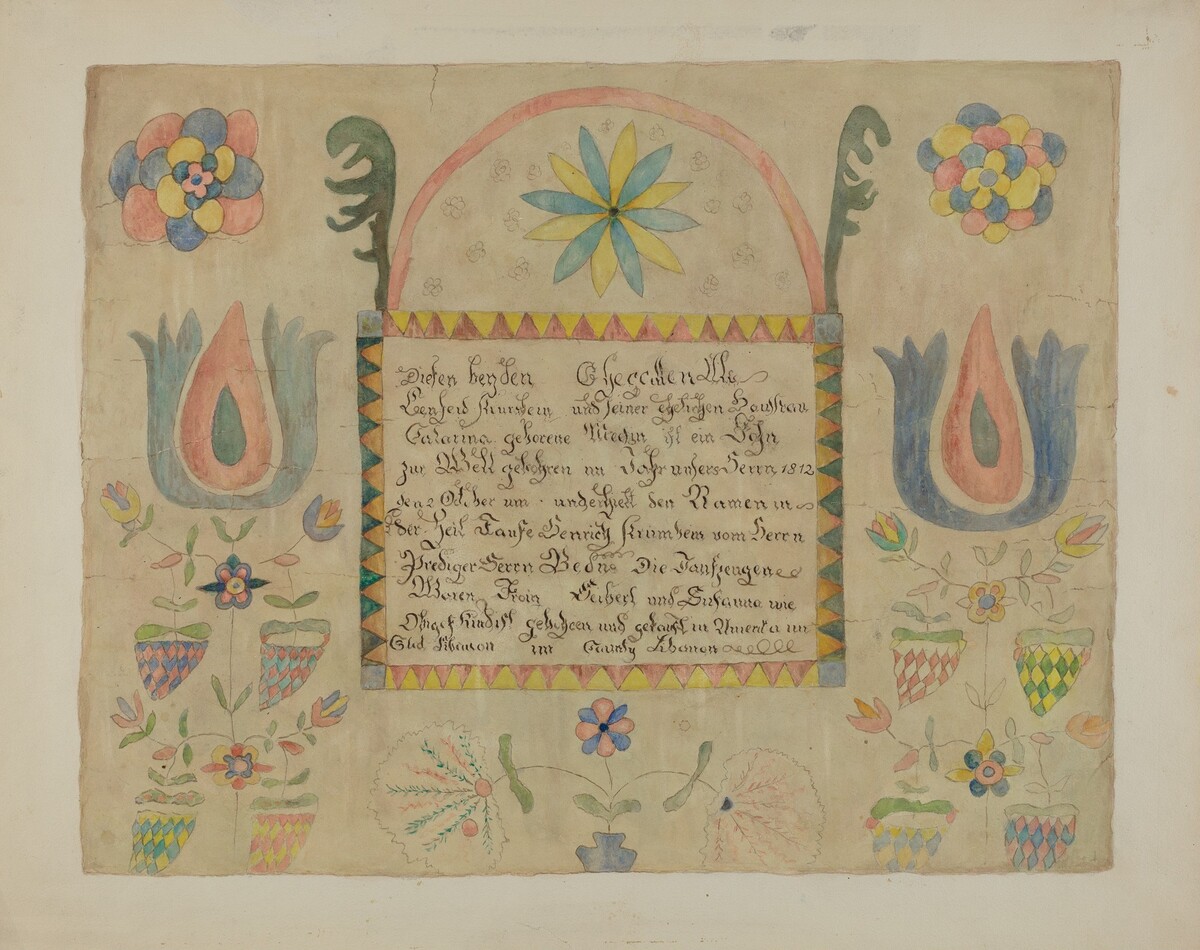 Diesen beyden Ehegatten Als
und seiner ehelichen Haussfrau
Catarina geborene ist ein Sohn
zur Welt gebohren im Jahr unsers Herrn 1812
den 2 October um underhielt den Namen in
der Heil Taufe Henrich Krumbein vom Herrn
Prediger Herrn Die Taufzeugen
Waren Seibert und Susanna wie
gebohren und getauft in America im
Libanon im Caunty Libanon